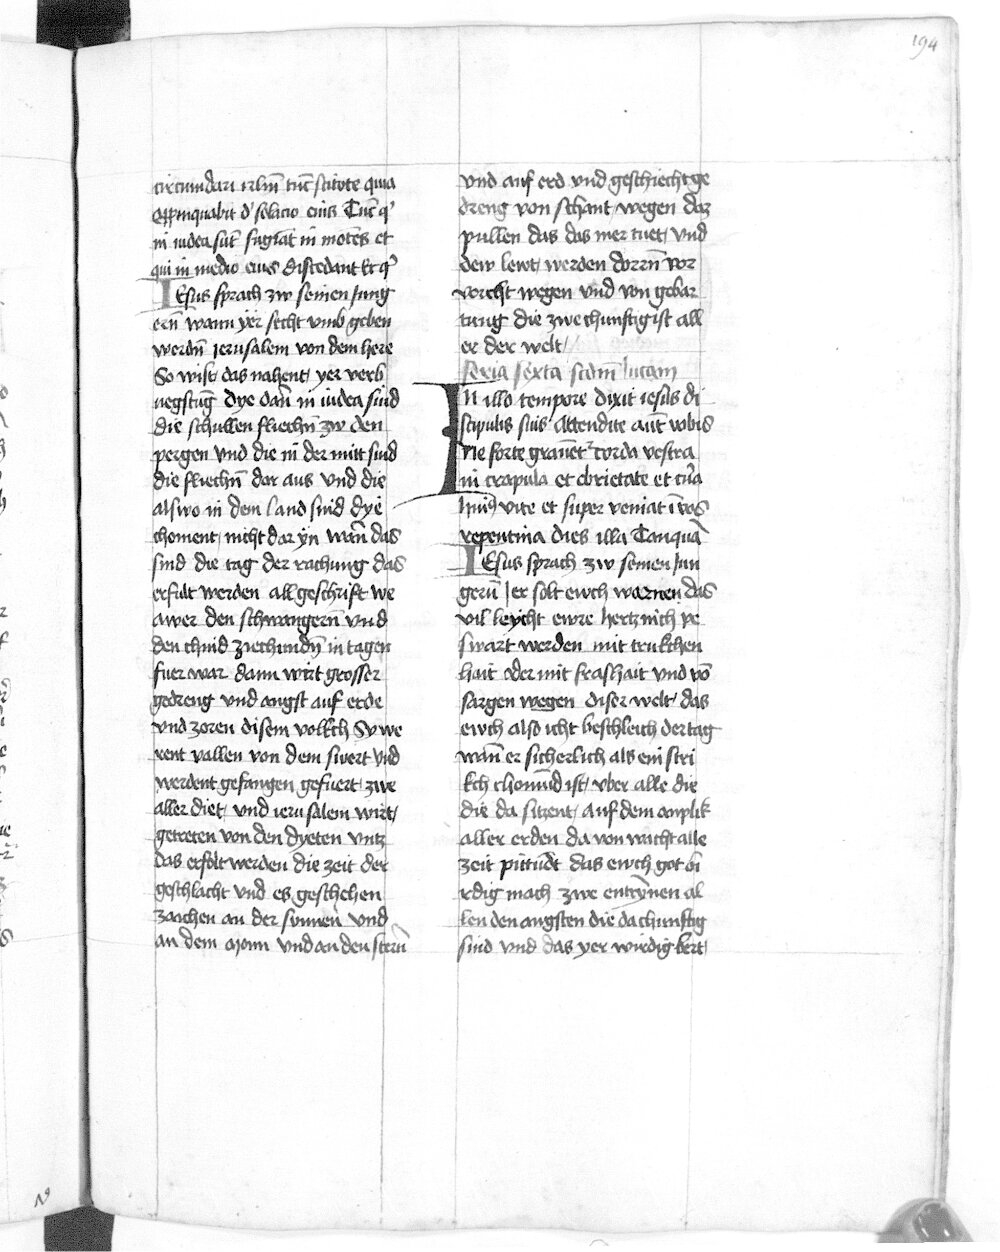 194
circumdari irlm̄ tūc scitote quia
appinquabit d'solacio eius Tūc q'
in iudea sūt fugiāt in mōtes et
qui in medio eius discedant et q'
Iesus sprach zw seinen Jung
ern̄ wann yer secht vmb geben
werdn̄ ierusalem von dem here
So wist das nahent yer verb
uegstūg dye dan̄ in iudea sind
die schullen fliechn̄ zw den
pergen vnd die in der mitt sind
die fliechn̄ dar aus vnd die
alswo in dem land sind dye
choment nicht dar yn wān das
sind die tag der rachung das
erfult werden all geschrift we
awer den schwangern̄ vnd
den chind ziechundn̄ in tagen
fuer war dann wirt grosser
gedreng vnd angst auf erde
vnd zoren disem volkch Sy we
rent vallen von dem swert vnd
werdent gefangen gefuert zwe
aller diet vnd ierusalem wirt
getreten von den dyeten vntz
das erfolt werden die zeit der
geschlacht vnd es geschehen
zaichen an der sunnen vnd
an dem monn vnd an den stern̄
vnd auf erd vnd geschiecht ge
dreng von schant wegen daz
pullen das das mer tuet vnd
dew lewt werden dorrn̄ vor
vorcht wegen vnd von gebar
tung die zwechunftig ist all
er der welt
feria sexta scdm̄ lucam
In illo tempore dixit iesus di
scipulis suis Attendite aūt vobis
ne forte grauēt' corda vestra
in crapula et ebrietate et cūa
huius vite et super veniat ī vos
repentina dies illa Tanquā
Iesus sprach zw seinen Jun
gern̄ Jer solt ewch warnen das
vil leycht ewre hertz nich pe
swart werden mit trukchen
hait oder mit frashait vnd vō
sargen wegen diser welt das
ewch also icht beschleich der tag
wān er sicherlich als ein stri
kch chomūd ist vber alle die
die da sitzent auf dem anplik
aller erden da von wacht alle
zeit pittūdt das ewch got bi
rdig mach zwe entrynen al
len den angsten die da chunftig
sind vnd das yer wirdig bert